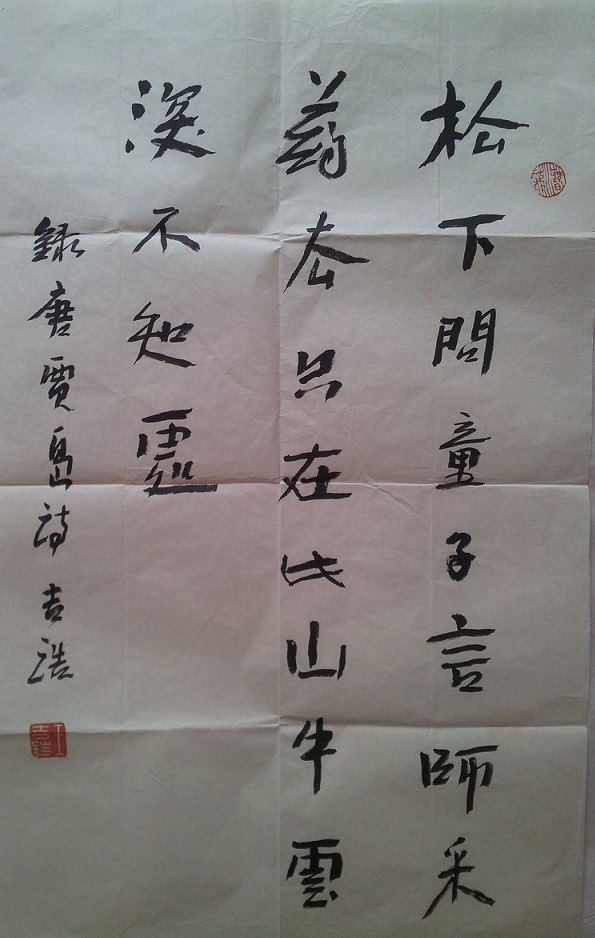 松下問童子言師采
葯去只在此山中雲
深不知處
錄唐賈島詩 吉